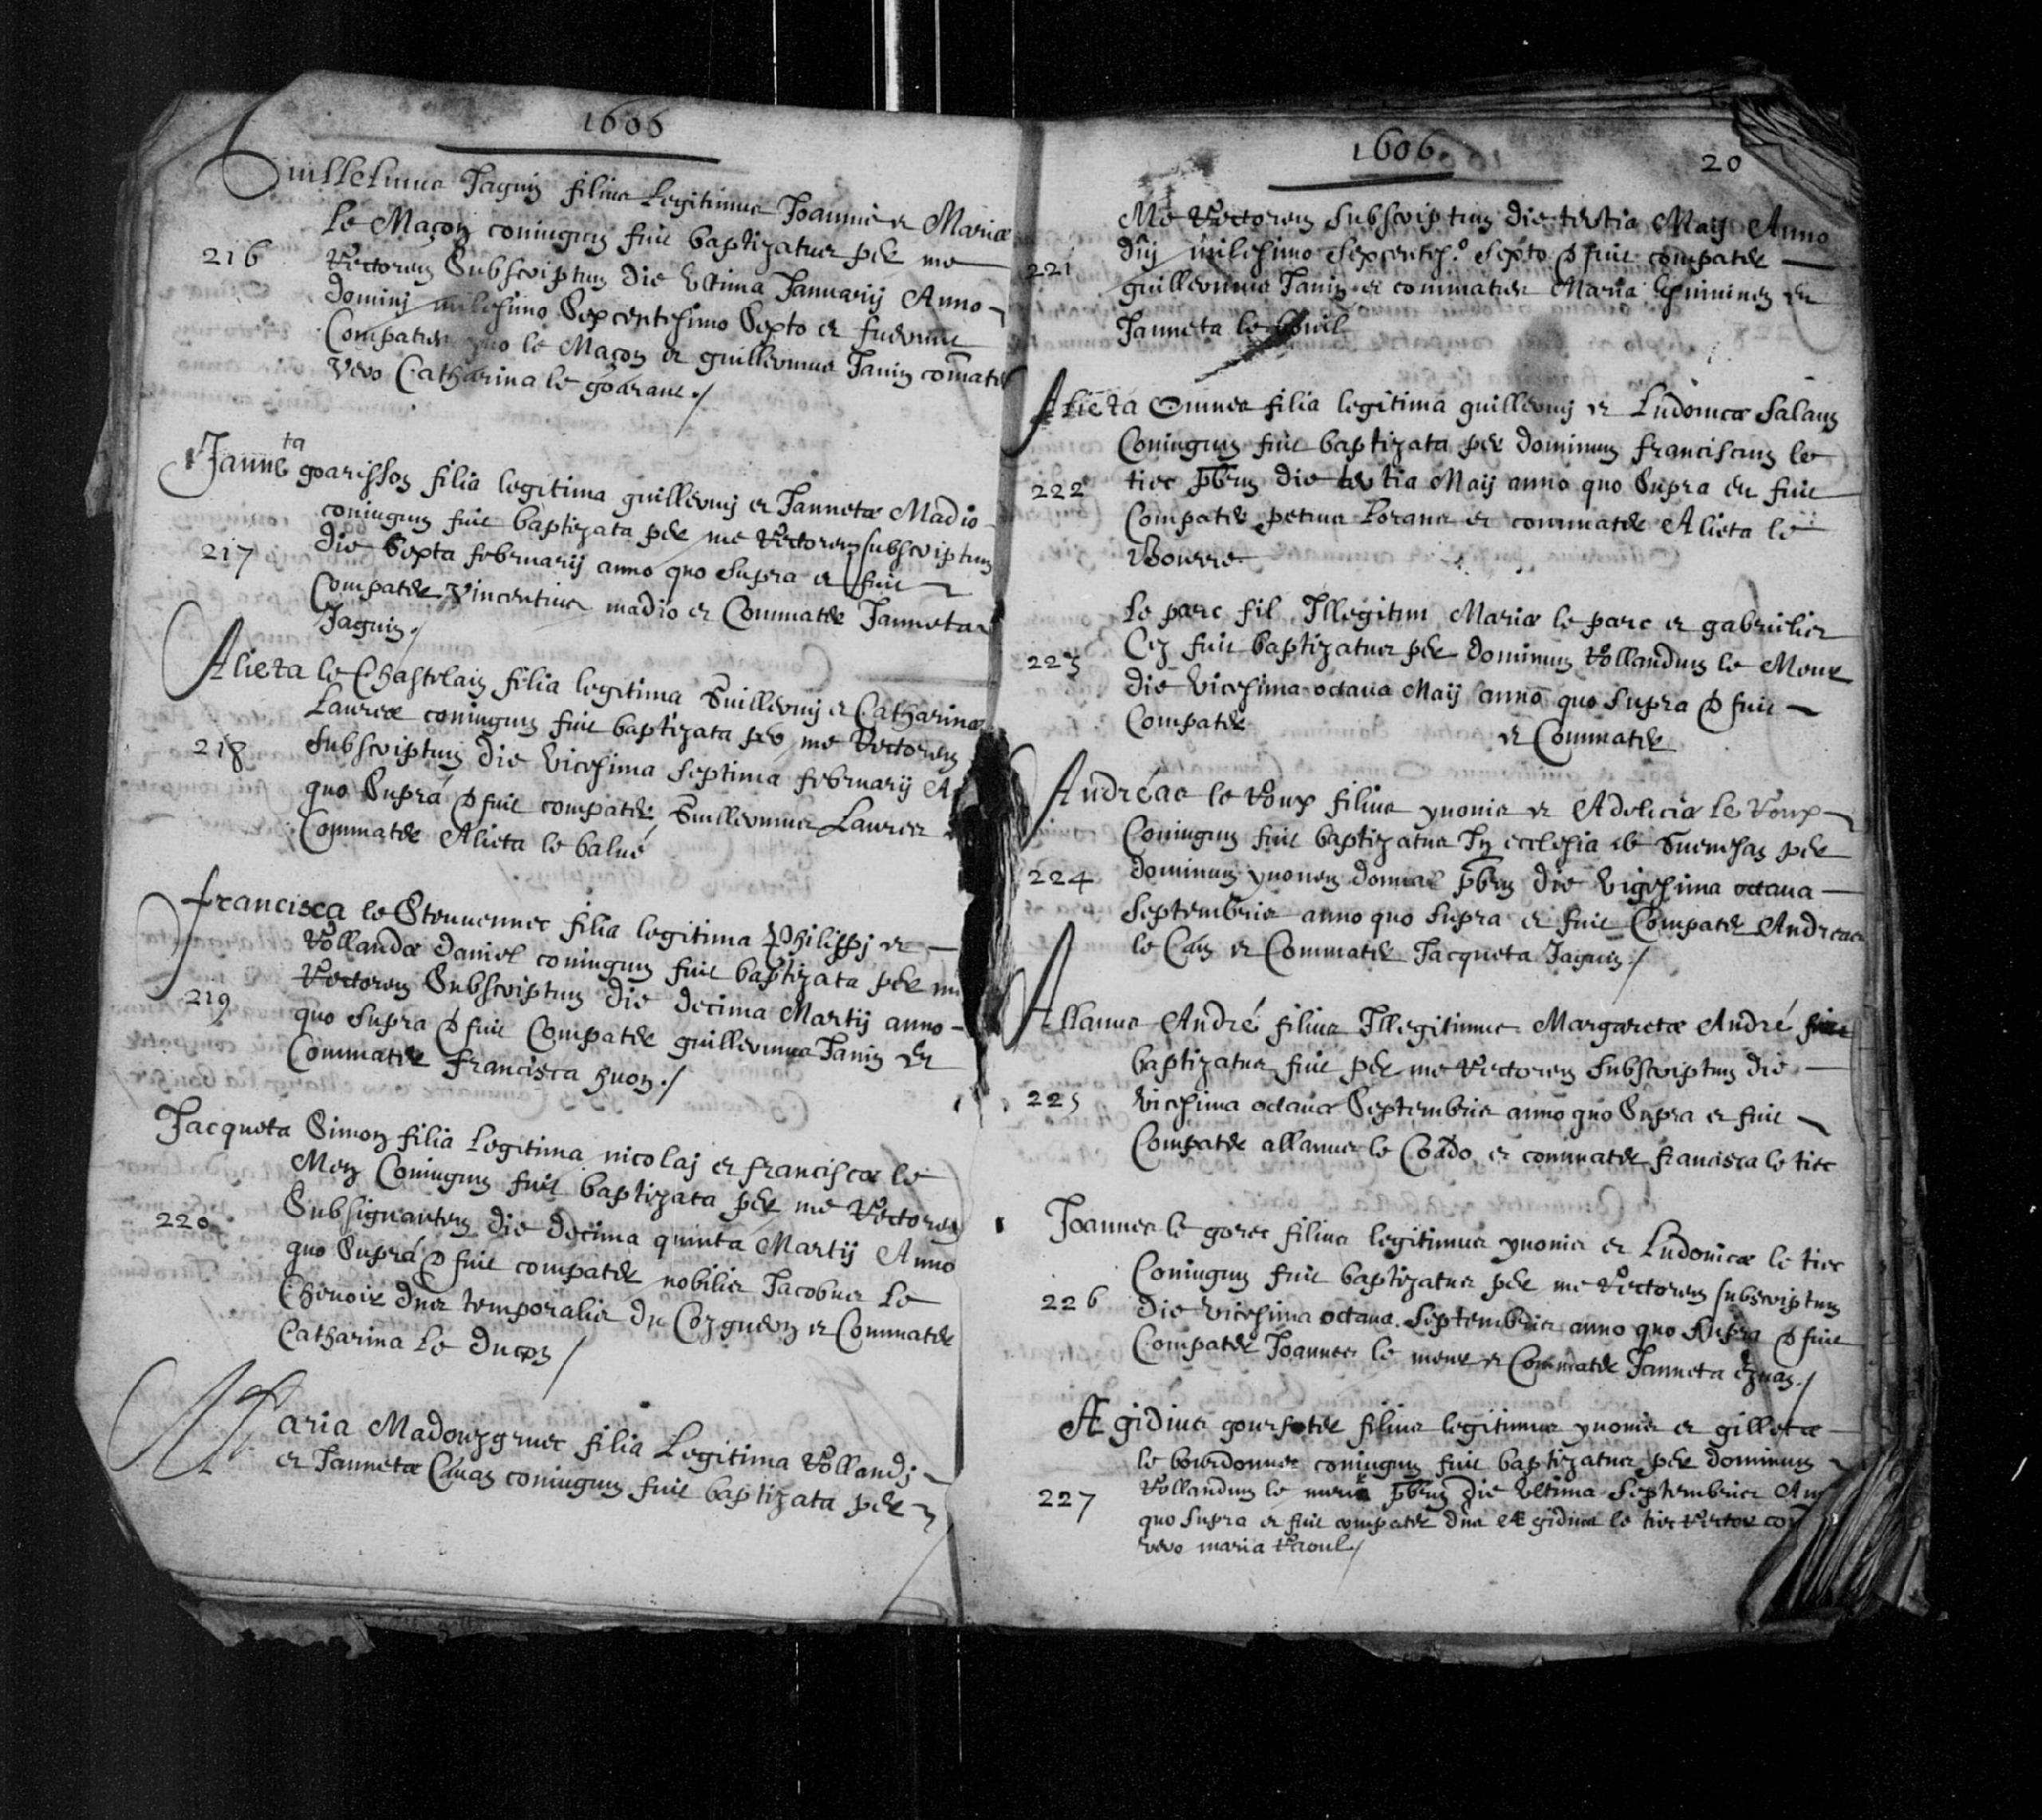 1606
Guillelmus Jaguin filius Legitimus Joannis et Mariæ
le Maçon coniugum fuit baptizatus per me
216
Rectorem Subscriptum die Ultima Januarij Anno
dominj milesimo Sexcentesimo Sexto et fuerunt
Compatres yuo le Maçon et guillermus Janin comater
vero Catharina le goarant ./
Janneta goarisson filia legitima guillermj et Jannetæ Madio
coniugum fuit baptizata per me Rectorem subscriptum
217
die Sexta februarij anno quo Supra et fuit
Compater Vincentius madio et Commater Janneta
Jaguin ./
Alieta le Chastelain filia legitima Guillermj et Catharinæ
Laurec coniugum fuit baptizata per me Rectorem
218
Subscriptum die vicesima Septima februarij A
quo Supra & fuit compater Guillermus Laurec
Commater Alieta le balué
francisca le Stennennec filia legitima Philippj et
Rollandæ Daniel coniugum fuit baptizata per me
219
Rectorem Subscriptum die decima Martij anno
quo Supra & fuit Compater guillermus Janin et
Commater francisca huon ./
Jacqueta Simon filia Legitima nicolaj et franciscæ le
Men Coniugum fuit baptizata per me Rectorem
220
Subsignantem die decima quinta Martij Anno
quo Supra & fuit compater nobilis Jacobus Le
Chenoir dns temporalis du Cozguern et Commater
Catharina Le /
Maria Madouzgruec filia Legitima Rollandj
et Jannetæ Cauan coniugum fuit baptizata per
1606
20
Me Rectorem Subscriptum die tertia Maij Anno
221
dnj milesimo sexcentes.º sexto & fuit compater
guillermus Janin et commatres Maria et
Janneta le
Alieta Omnes filia legitima guillermj et Ludovicæ Salaun
Coniugum fuit baptizata per dominum franciscum le
222
tiec pbrum die tertia Maij anno quo Supra et fuit
Compater petrus Lorans et commater Alieta le
Le parc fil Illegitim Mariæ le parc et gabrielis
223
Cez fuit baptizatus per dominum Rollandum le Meur
die vicesima octaua Maij anno quo Supra & fuit
Compater
et Commater
Andréas le Roux filius yuonis et Adeliciæ Le Roux
Coniugum fuit baptizatus In ecclesia de Guenesan per
224
dominum yuonem pbrum die vigesima octaua
Septembris anno quo Supra et fuit Compater Andreas
le Cam et Commater Jacqueta Jaguin ./
Allanus André filius Illegitimus Margaretæ André
baptizatus fuit per me Rectorem Subscriptum die
225
vicesima octaua Septembris anno quo Supra et fuit
Compater allanus le Coado et commater francisca le tiec
Joannes le gorec filius legitimus yuonis et Ludovicæ le tiec
Coniugum fuit baptizatus per me Rectorem subscriptum
226
die vicesima octaua Septembris anno quo Supra & fuit
Compater Joannes le meur et Commater Janneta ./
Ægidius filius legitimus yuonis et gilletæ
le bourdonnec coniugum fuit baptizatus per dominum
227
Rollandum le meur pbrum die Ultima Septembris
quo Supra et fuit compater dns Ægidius le tiec Rector
vero maria Raoul /